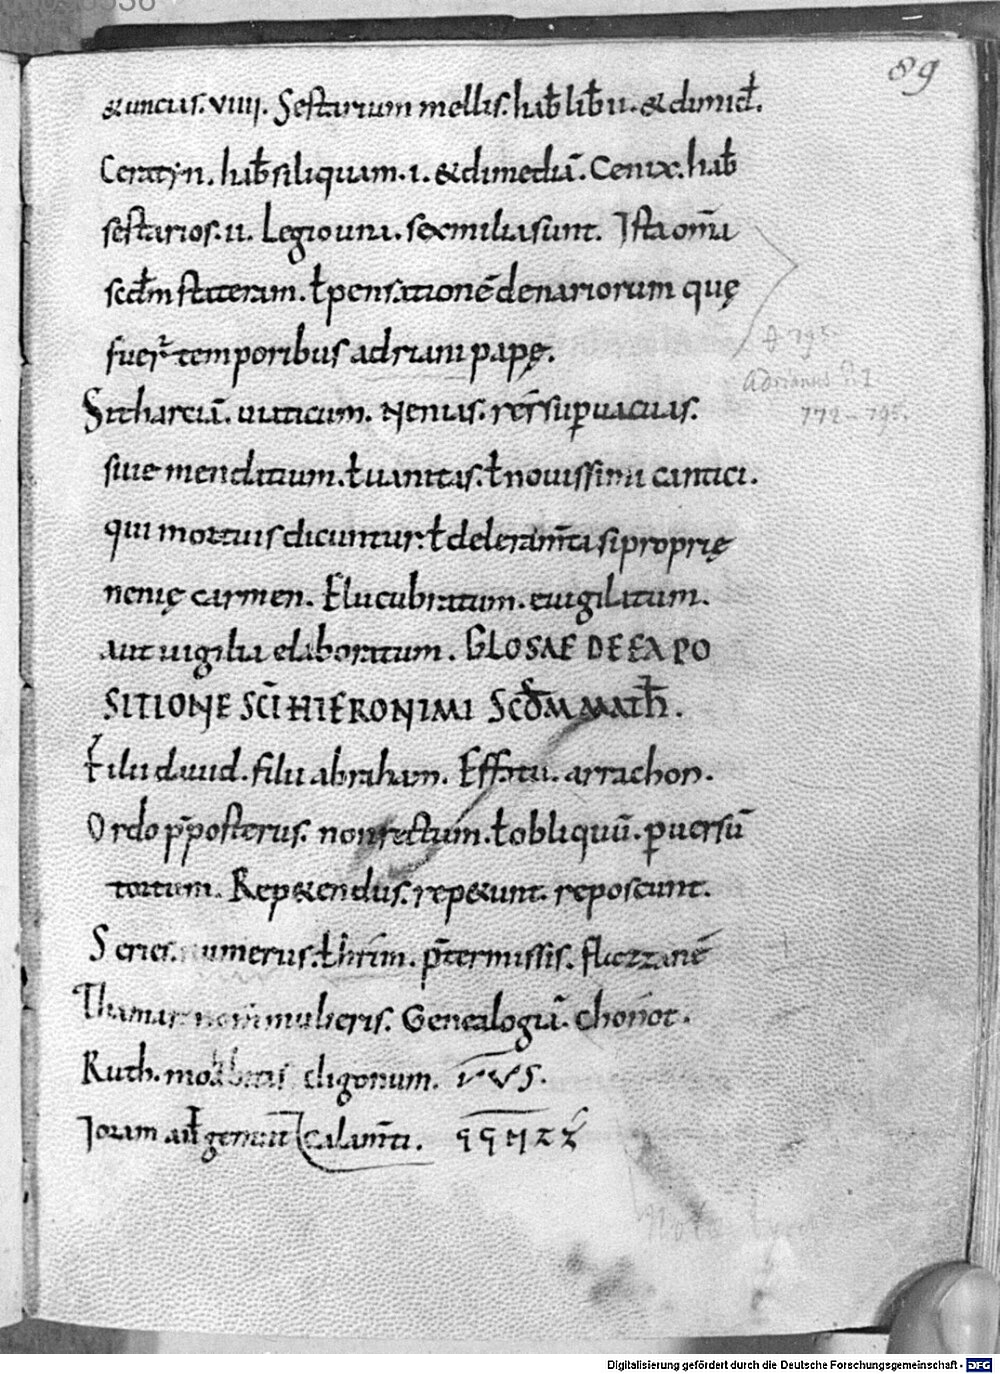 89
&uncias. VIIII. Sestarium mellis. hab̄ lib̄ II. &dimid̄.
Ceratyn. hab̄ siliquam. I. &dimediā. Cenix. hab̄
sestarios. II. Legio una. sex milia sunt. Ista om̄ia
scd̄m stateram. ł pensationē denariorum quę
fuer̄ temporibus adriani papę.
Sitharciā. uiaticum. Nenias. res̄ sup̄uacuas.
siue mendatium. ł uanitas. ł nouissimi cantici.
qui mortuis dicuntur. ł deleram̄ta si proprię
nenię carmen. Elucubratum. euigilatum.
aut uigilia elaboratum. GLOSAE DE EXPO
SITIONE SC̄I HIERONIMI SCD̄M MATH̄.
Filii dauid. filii abraham. Effrata. arrachon.
Ordo p̄posterus. non rectum. ł obliquū. p̄uersū
tortum. Rep&endus. rep&unt. reposcunt.
Series. numerus. p̄termissis.
Thamar nom̄ mulieris. Genealogiā.
Ruth. moabitis
Ioram aūt genuit calam̄ti.
A 795
Adrianus P. I
772 - 795.
Digitalisierung gefördert durch die Deutsche Forschungsgemeinschaft - DFG